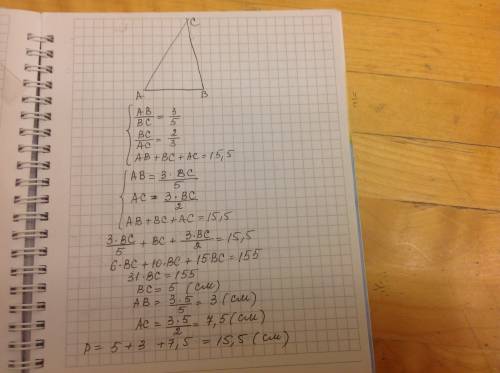 C
A B
AB/BC = 3/5
BC/AC = 2/3
AB + BC + AC = 15,5
AB = 3·BC/5
AC = 3·BC/2
AB + BC + AC = 15,5
3·BC/5 + BC + 3·BC/2 = 15,5
6·BC + 10·BC + 15BC = 155
31·BC = 155
BC = 5 (см)
AB = 3·5/5 = 3 (см)
AC = 3·5/2 = 7,5 (см)
P = 5 + 3 + 7,5 = 15,5 (см)